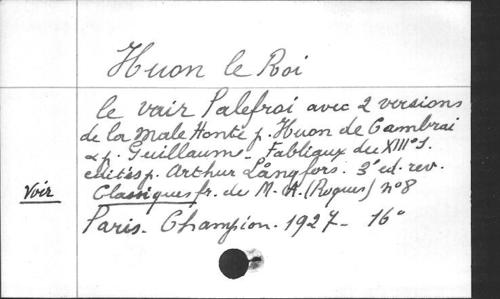 Huon le Roi
le vair Palefroi avec 2 versions
de la Male Honte p. Huon de Cambrai
& p. Guillaume - Fabliaux du XIIIe s.
édités p. Arthur Långfors. 3e ed. rev.
Voir Classiques fr. de M. A. (Roques) n° 8
Paris - Champion. 1927 - 16°